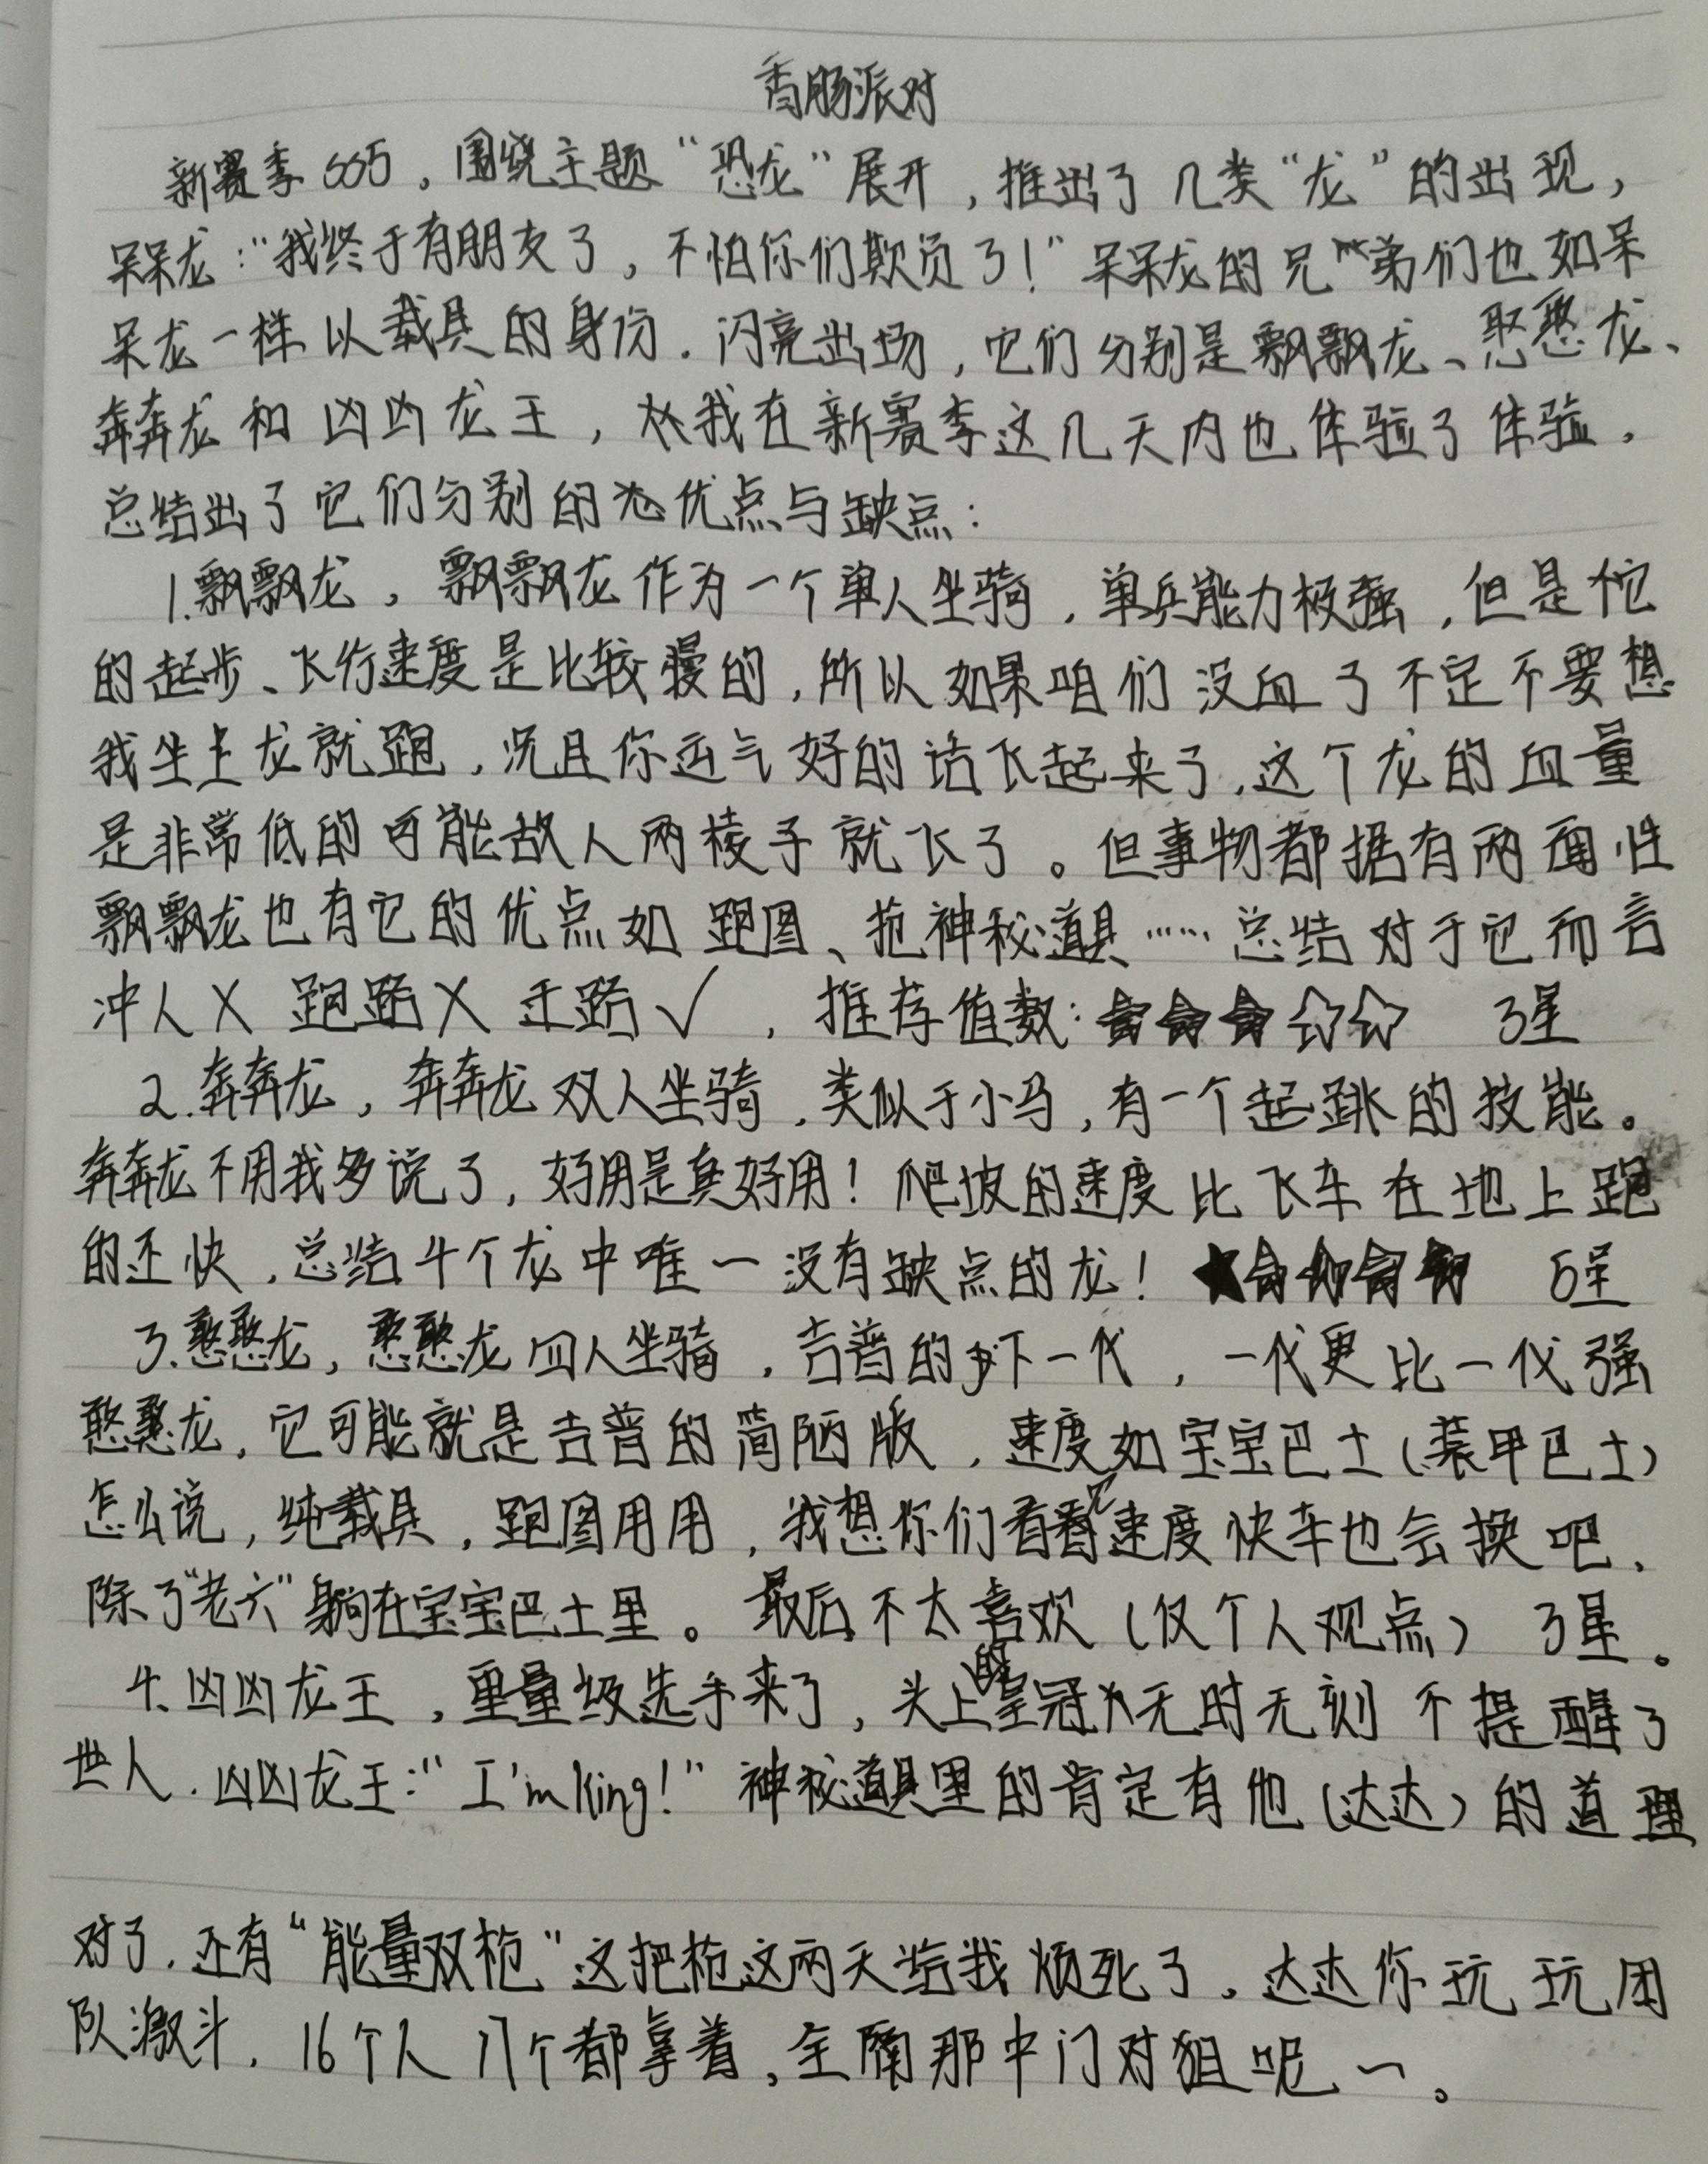 香肠派对
新赛季SS5。围绕主题“恐龙”展开，推出了几类“龙”的出现，
呆呆龙：“我终于有朋友了，不怕你们欺负了！”呆呆龙的兄弟们也如呆
呆龙一样以载具的身份．闪亮出场，它们分别是飘飘龙、憨憨龙、
奔奔龙和凶凶龙王，我在新赛季这几天内也体验了体验，
总结出了它们分别的优点与缺点：
1.飘飘龙，飘飘龙作为一个单人坐骑，单兵能力极强，但是它
的起步、飞行速度是比较慢的，所以如果咱们没血了不定不要想
我坐上龙就跑，况且你运气好的话飞起来了，这个龙的血量
是非常低的可能敌人两梭子就飞了。但事物都据有两面性
飘飘龙也有它的优点如跑图、抢神秘道具……总结对于它而言
冲人X 跑路X 走路✓，推荐值数：★★★☆☆ 3星
2.奔奔龙，奔奔龙双人坐骑，类似于小马，有一个起跳的技能。
奔奔龙不用我多说了，好用是真好用！爬坡的速度比飞车在地上跑
的还快，总结4个龙中唯一没有缺点的龙！★★★★★ 5星
3.憨憨龙，憨憨龙四人坐骑，吉普的下一代，一代更比一代强
憨憨龙，它可能就是吉普的简陋版，速度如宝宝巴士（装甲巴士）
怎么说，纯载具，跑图用用，我想你们看看见速度快车也会换吧，
除了“老六”躺在宝宝巴士里。最后不太喜欢（仅个人观点） 3星。
4.凶凶龙王，重量级选手来了，头上的皇冠无时无刻不提醒了
世人．凶凶龙王：“I'm king！”神秘道具里的肯定有他（达达）的道理
对了，还有“能量双枪”这把枪这两天给我烦死了，达达你玩玩团
队激斗，16个人八个都拿着，全搁那中门对狙呢～。